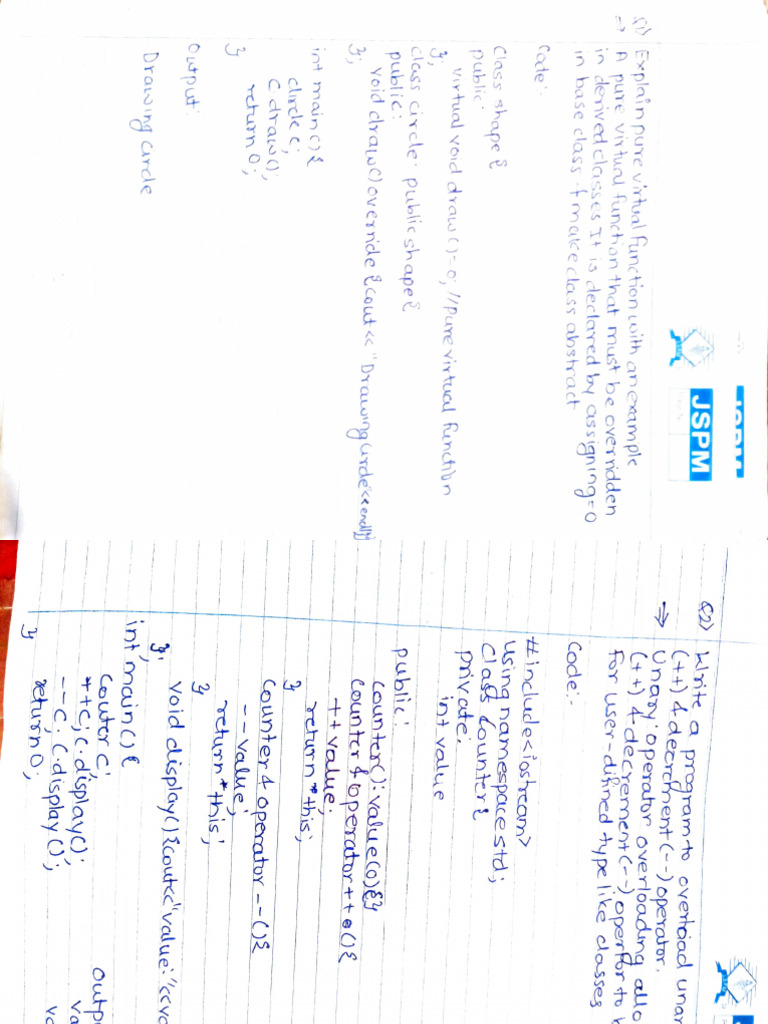 JSPM
JSPM
Q1) Explain pure virtual function with an example
⇒ A pure virtual function that must be overridden
in derived classes It is declared by assigning = 0
in base class & make class abstract
Code:-
Class shape {
public:
virtual void draw() = 0; //Pure virtual function
};
class circle: public shape {
public:
void draw() override { cout << "Drawing circle" << endl; }
};
int main() {
circle c;
c.draw();
return 0;
}
Output:
Drawing circle
Q2) Write a program to overload unar
(++) & decrement (--) operator.
⇒ Unary operator overloading allo
(++) & decrement (--) opertor to b
for user-difined type like classes
Code:-
#include <iostream>
using namespace std;
Class Counter {
private:
int value
public:
Counter(): value(0) {}
Counter & operator ++ () {
++ value;
return *this;
}
Counter & operator -- () {
-- value;
return *this;
}
void display() { cout << "value: " <<va
};
int main() {
Couter c;
++c; c.display();
--c; c.display();
return 0;
}
Outp
Va
va